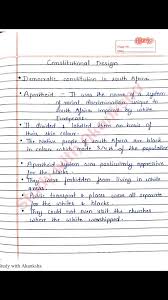 Constitutional Design
Democratic constitution in South Africa
Apartheid - It was the name of a system
of racial discrimination unique to
South Africa imposed by white
Europeans
It divided & labelled them on basis of
their skin colour
The native people of South Africa are black
in colour which made 3/4th of the population
Apartheid system was particularly oppressive
for the blacks.
They were forbidden from living in white
areas.
Public transport & places were all separate
for the whites & blacks.
They could not even visit the churches
where the white worshipped.
Study with Akanksha